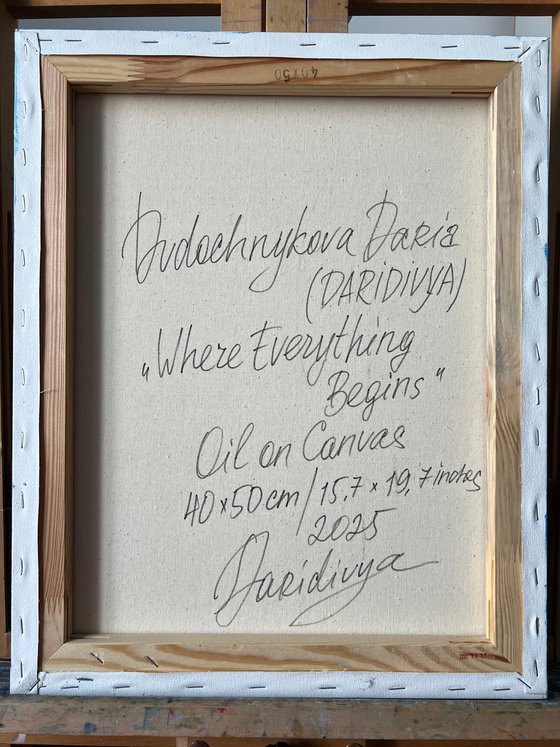 40x50
Dudochnykova Daria
(DARIDIVYA)
„Where Everything
Begins"
Oil on Canvas
40×50 cm / 15,7 × 19,7 inches
2025
Daridivya